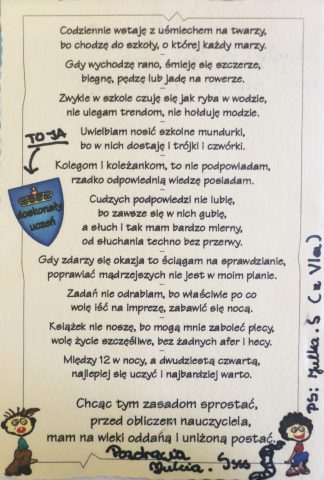 Codziennie wstaję z uśmiechem na twarzy,
bo chodzę do szkoły, o której każdy marzy.
Gdy wychodzę rano, śmieję się szczerze,
biegnę, pędzę lub jadę na rowerze.
Zwykle w szkole czuję się jak ryba w wodzie,
nie ulegam trendom, nie hołduję modzie.
TO JA
Uwielbiam nosić szkolne mundurki,
bo w nich dostaję i trójki i czwórki.
Kolegom i koleżankom, to nie podpowiadam,
rzadko odpowiednią wiedzę posiadam.
doskonały
uczeń
Cudzych podpowiedzi nie lubię,
bo zawsze się w nich gubię,
a słuch i tak mam bardzo mierny,
od słuchania techno bez przerwy.
Gdy zdarzy się okazja to ściągam na sprawdzianie,
poprawiać mądrzejszych nie jest w moim planie.
Zadań nie odrabiam, bo właściwie po co
wolę iść na imprezę, zabawić się nocą.
Książek nie noszę, bo mogą mnie zaboleć plecy,
wolę życie szczęśliwe, bez żadnych afer i hecy.
Między 12 w nocy, a dwudziestą czwartą,
najlepiej się uczyć i najbardziej warto.
Chcąc tym zasadom sprostać,
przed obliczem nauczyciela,
mam na wieki oddaną i uniżoną postać.
Pozdrawia
Julcia. S
PS: Julka. S (z VIa)